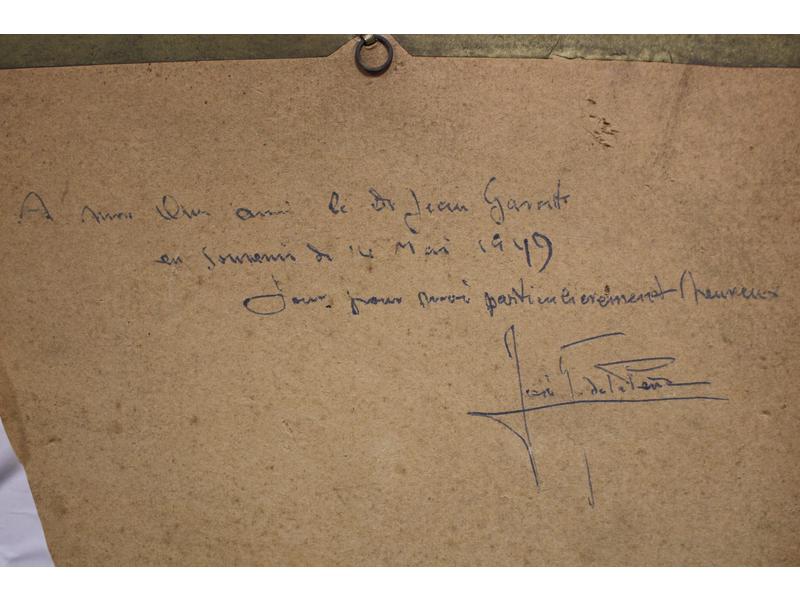 A mon cher ami le Dr Jean
en souvenir du 14 Mai 1949
Jour pour moi particulièrement heureux
José T. de la Peña